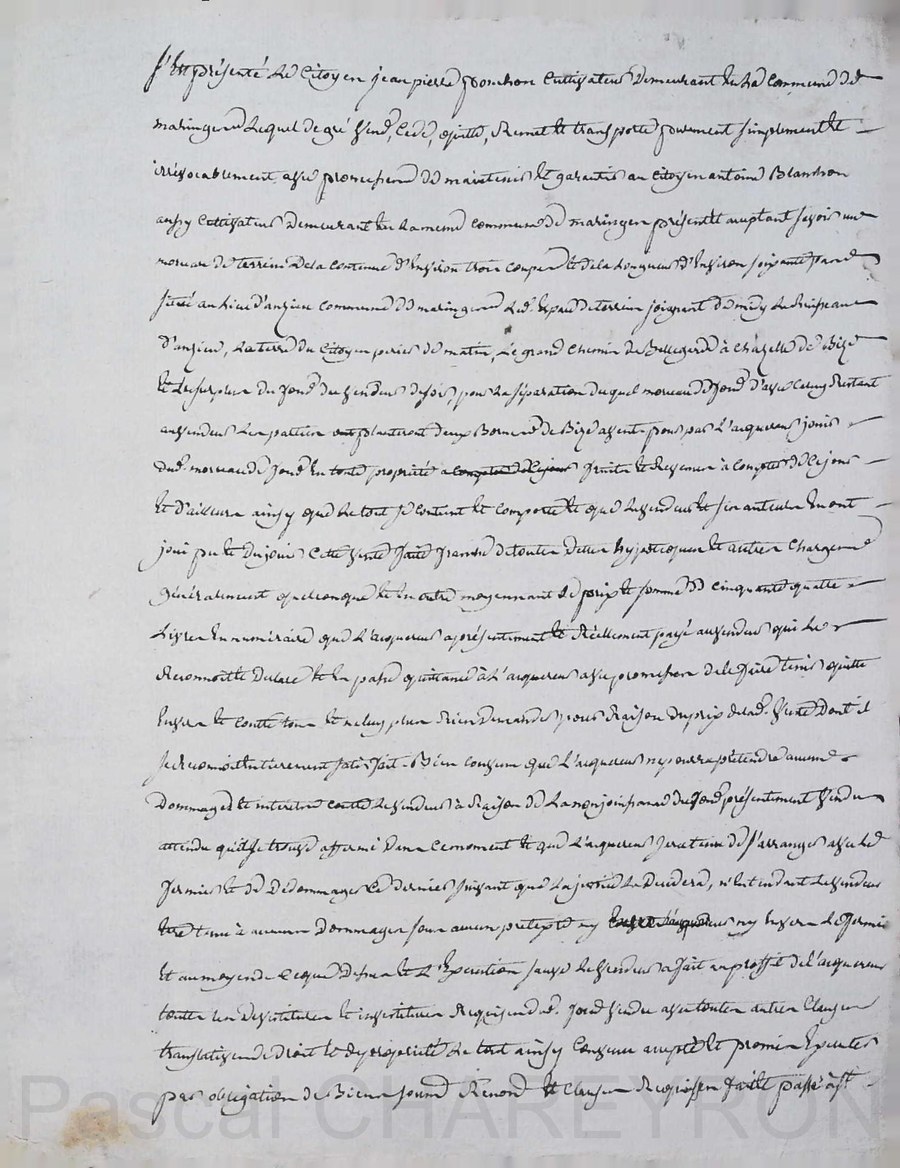 S'est présenté le Citoyen jean pierre ponchon Cultivateur demeurant en la Commune de
maringe lequel de gré vend, Cede, quitte, Remet et transporte purement simplement et
irrévocablement avec promesse de maintenir et garantir au Citoyen antoine Blanchon
aussy Cultivateur demeurant en la meme Commune de maringe présent et acceptant savoir un
morceau de terrein de la Contenue d'Environ trois coupes et de la longueur d'Environ soixante pas
situé au lieu d'anzieu Commune de maringe led. Espace de terrein joignant de midy le Ruisseau
d'anzieu, la terre du Citoyen perier de matin, le grand Chemin de Bellegarde à Chazelle de Bize
et le surplus du fond du vendeur de soir, pour la séparation duquel morceau de fond d'avec celuy Restant
au vendeur les parties planteront deux Bornes de Bize a vent pour par l'acquereur jouir
dud. morceau de fond en toute propriété a compter de ce jour fruits et Revenus à Compter de Ce jour
et d'ailleurs ainsy que le tout se contient et comporte et que le vendeur et ses auteurs en ont
joui pu et du jouir Cette vente faite franche de toutes dettes hypotecques et autres Charges
généralement quelconques et en outre moyennant le prix et somme de cinquante quatre
Livres en numéraire que L'acquereur a présentement et Réellement payé au vendeur qui le
Reconnoit et declare et en passe quittance à L'acquereur avec promesse de le faire tenir quitte
Envers et contre tous et ne luy plus Rien demander pour Raison du prix de lad. vente dont il
se reconnoit entierement satisfait. Bien convenu que L'acquereur ne pourra prétendre aucuns
dommages et interets contre le vendeur à Raison de La non jouissance du fond présentement vendu
attendu qu'il se trouve affermé dans Ce moment et que L'acquereur sera tenu de s'arranger avec le
fermier et de Dédommager Ce dernier suivant que La justice Le Décidera, n'Entendant le vendeur
Etre tenu à aucuns Dommages sous aucun prétexte ny Envers L'acquereur ny Envers le fermier
Et au moyen de Ce que Dessus et L'Execution sauve le vendeur a fait au proffit de L'acquereur
toutes les Devestitures et investitures Requises dud. fond vendu avec toutes autres Clauses
translatives de droit et de propriété Le tout ainsy Convenu accepté et promis Executer
par obligation de Biens soumis Renon et Clauses Requises fait et passé à St
Pascal CHAREYRON